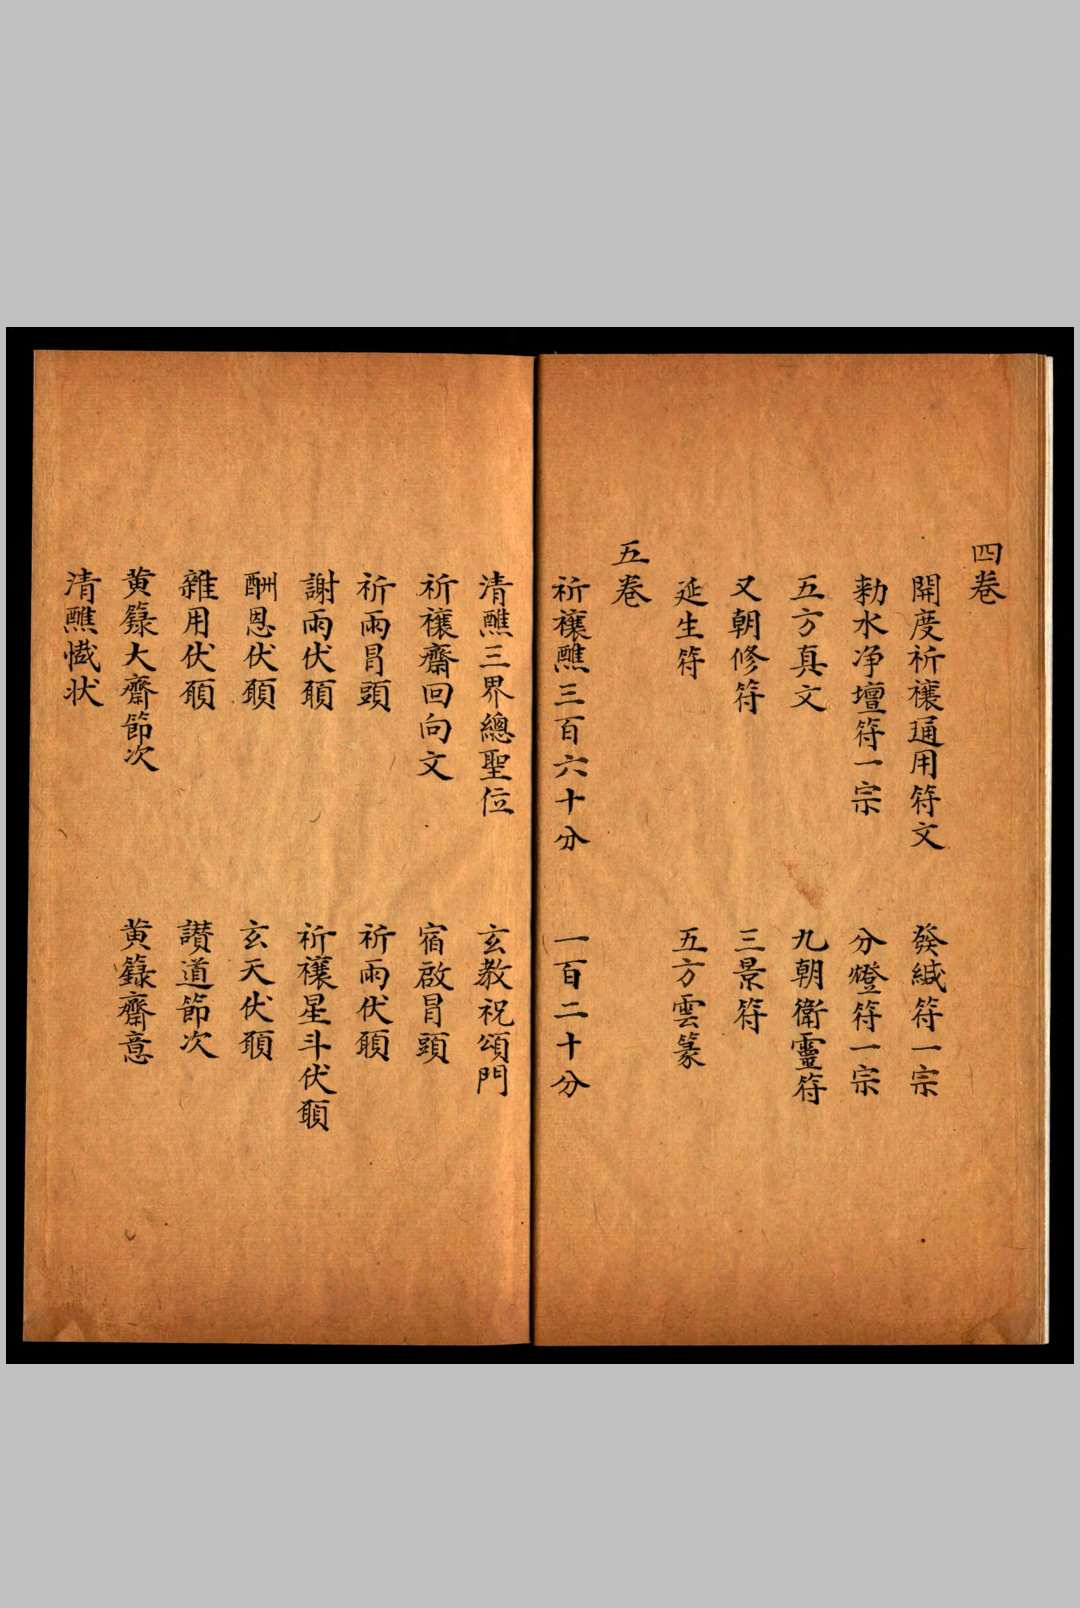 四卷
開度祈禳通用符文　發緘符一宗
勑水净壇符一宗　分燈符一宗
五方真文　九朝衛靈符
又朝修符　三景符
延生符　五方雲篆
五卷
祈禳醮三百六十分　一百二十分
清醮三界總聖位　玄教祝頌門
祈禳齋回向文　宿啟冒頭
祈雨冒頭　祈雨伏願
謝雨伏願　祈禳星斗伏願
酬恩伏願　玄天伏願
雜用伏願　讃道節次
黄籙大齋節次　黄籙齋意
清醮懺状